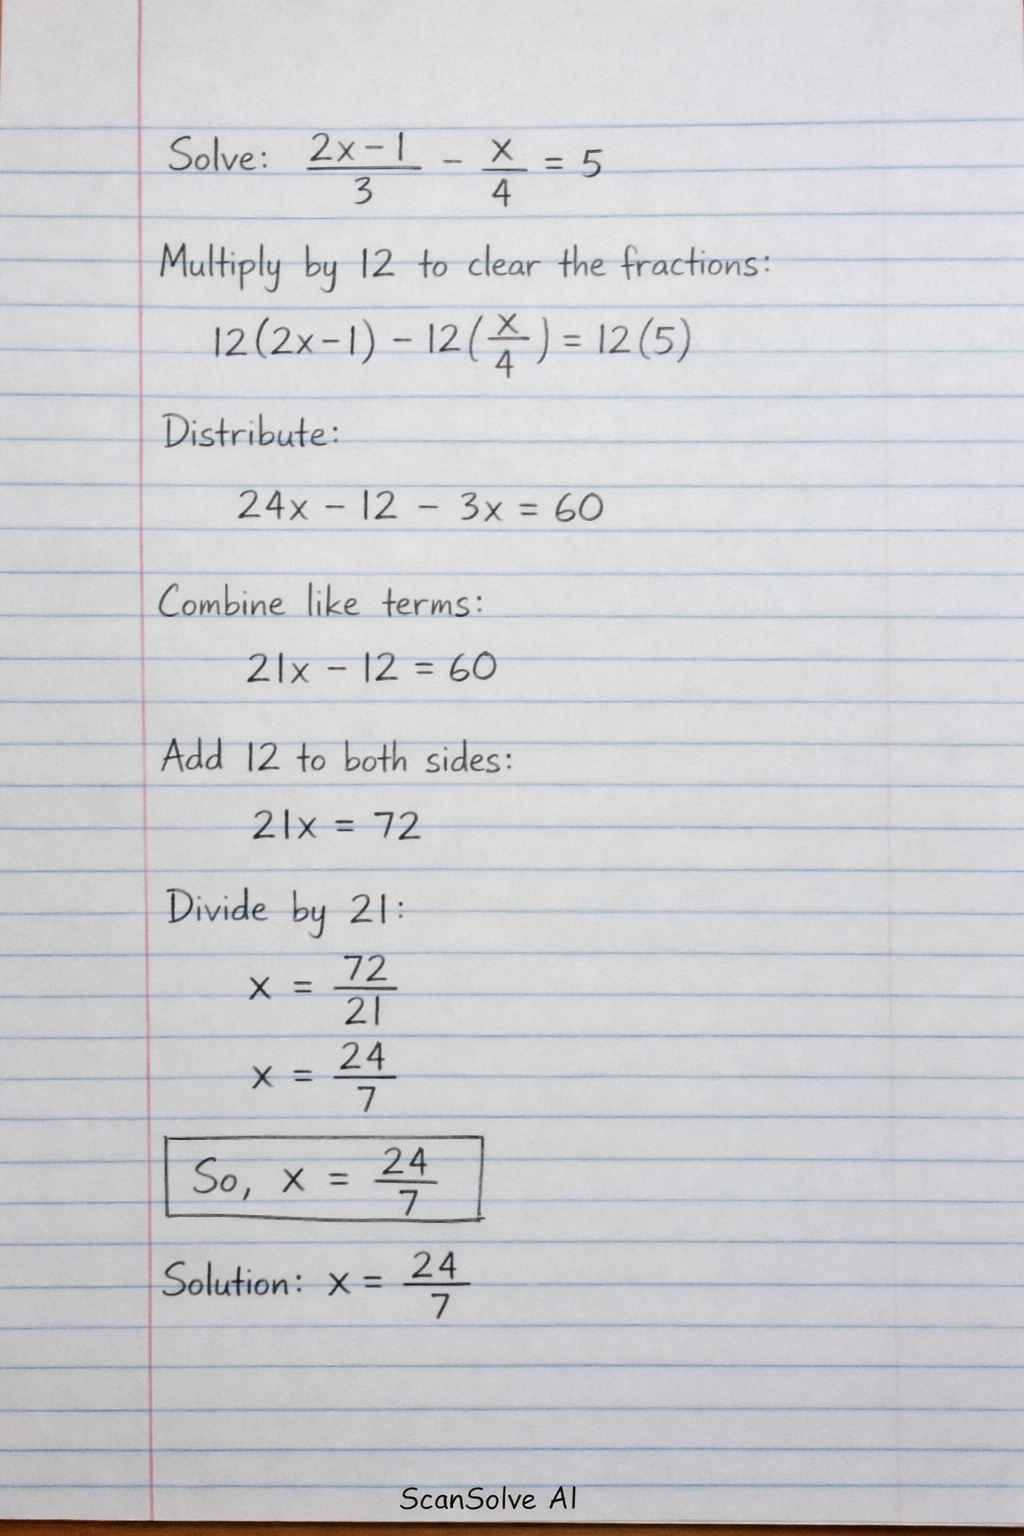 Solve: (2x-1)/3 - x/4 = 5
Multiply by 12 to clear the fractions:
12(2x-1) - 12(x/4) = 12(5)
Distribute:
24x - 12 - 3x = 60
Combine like terms:
21x - 12 = 60
Add 12 to both sides:
21x = 72
Divide by 21:
x = 72/21
x = 24/7
So, x = 24/7
Solution: x = 24/7
ScanSolve AI